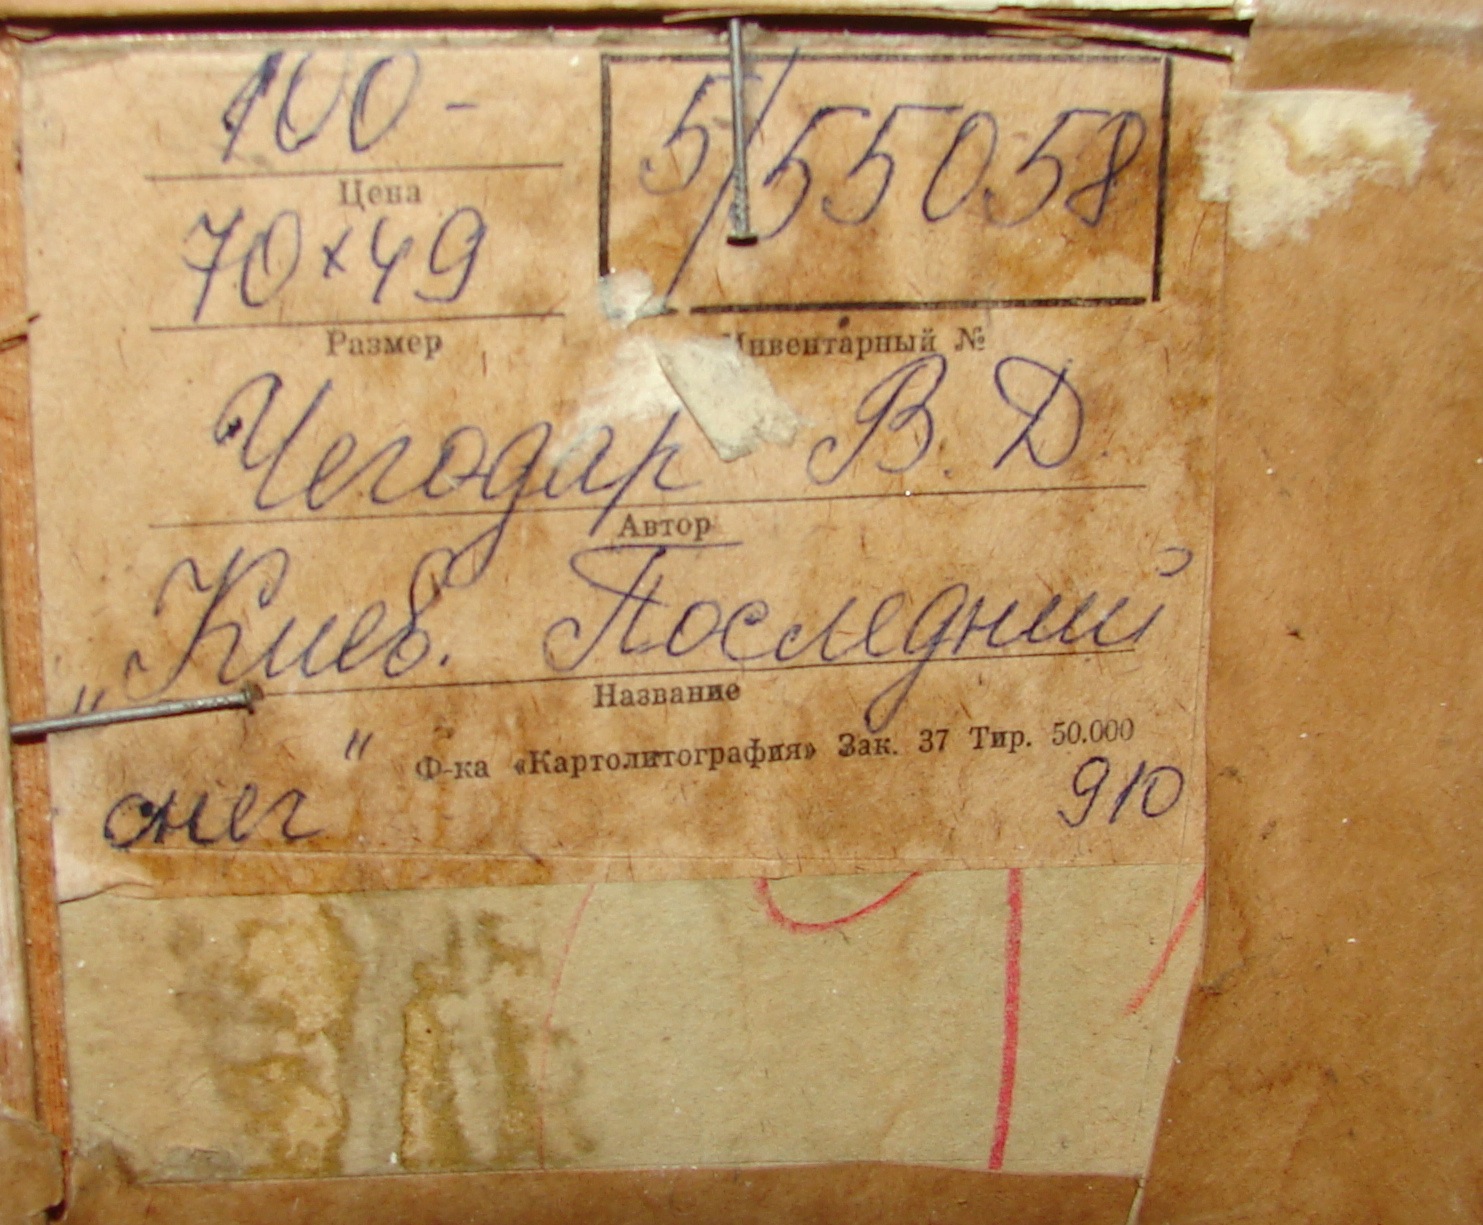 100 -
5/55058
Цена
70×49
Размер
Инвентарный №
Чегодар В. Д.
Автор
„Киев. Последний
Название
"
Ф-ка «Картолитография» Зак. 37 Тир. 50.000
снег
910